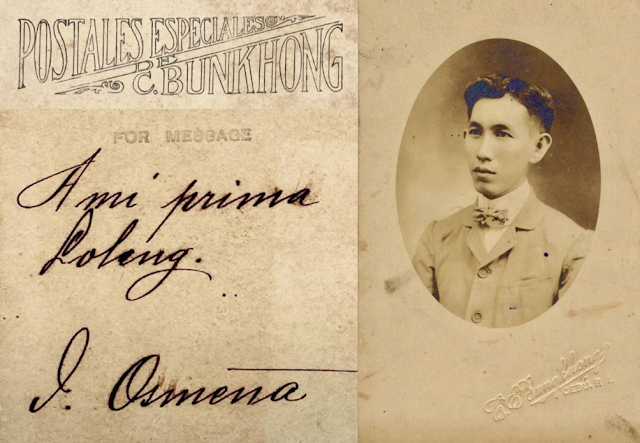 POSTALES ESPECIALES
DE
C. BUNKHONG
FOR MESSAGE
A mi prima
Loleng.
Osmeña
Bunkhong